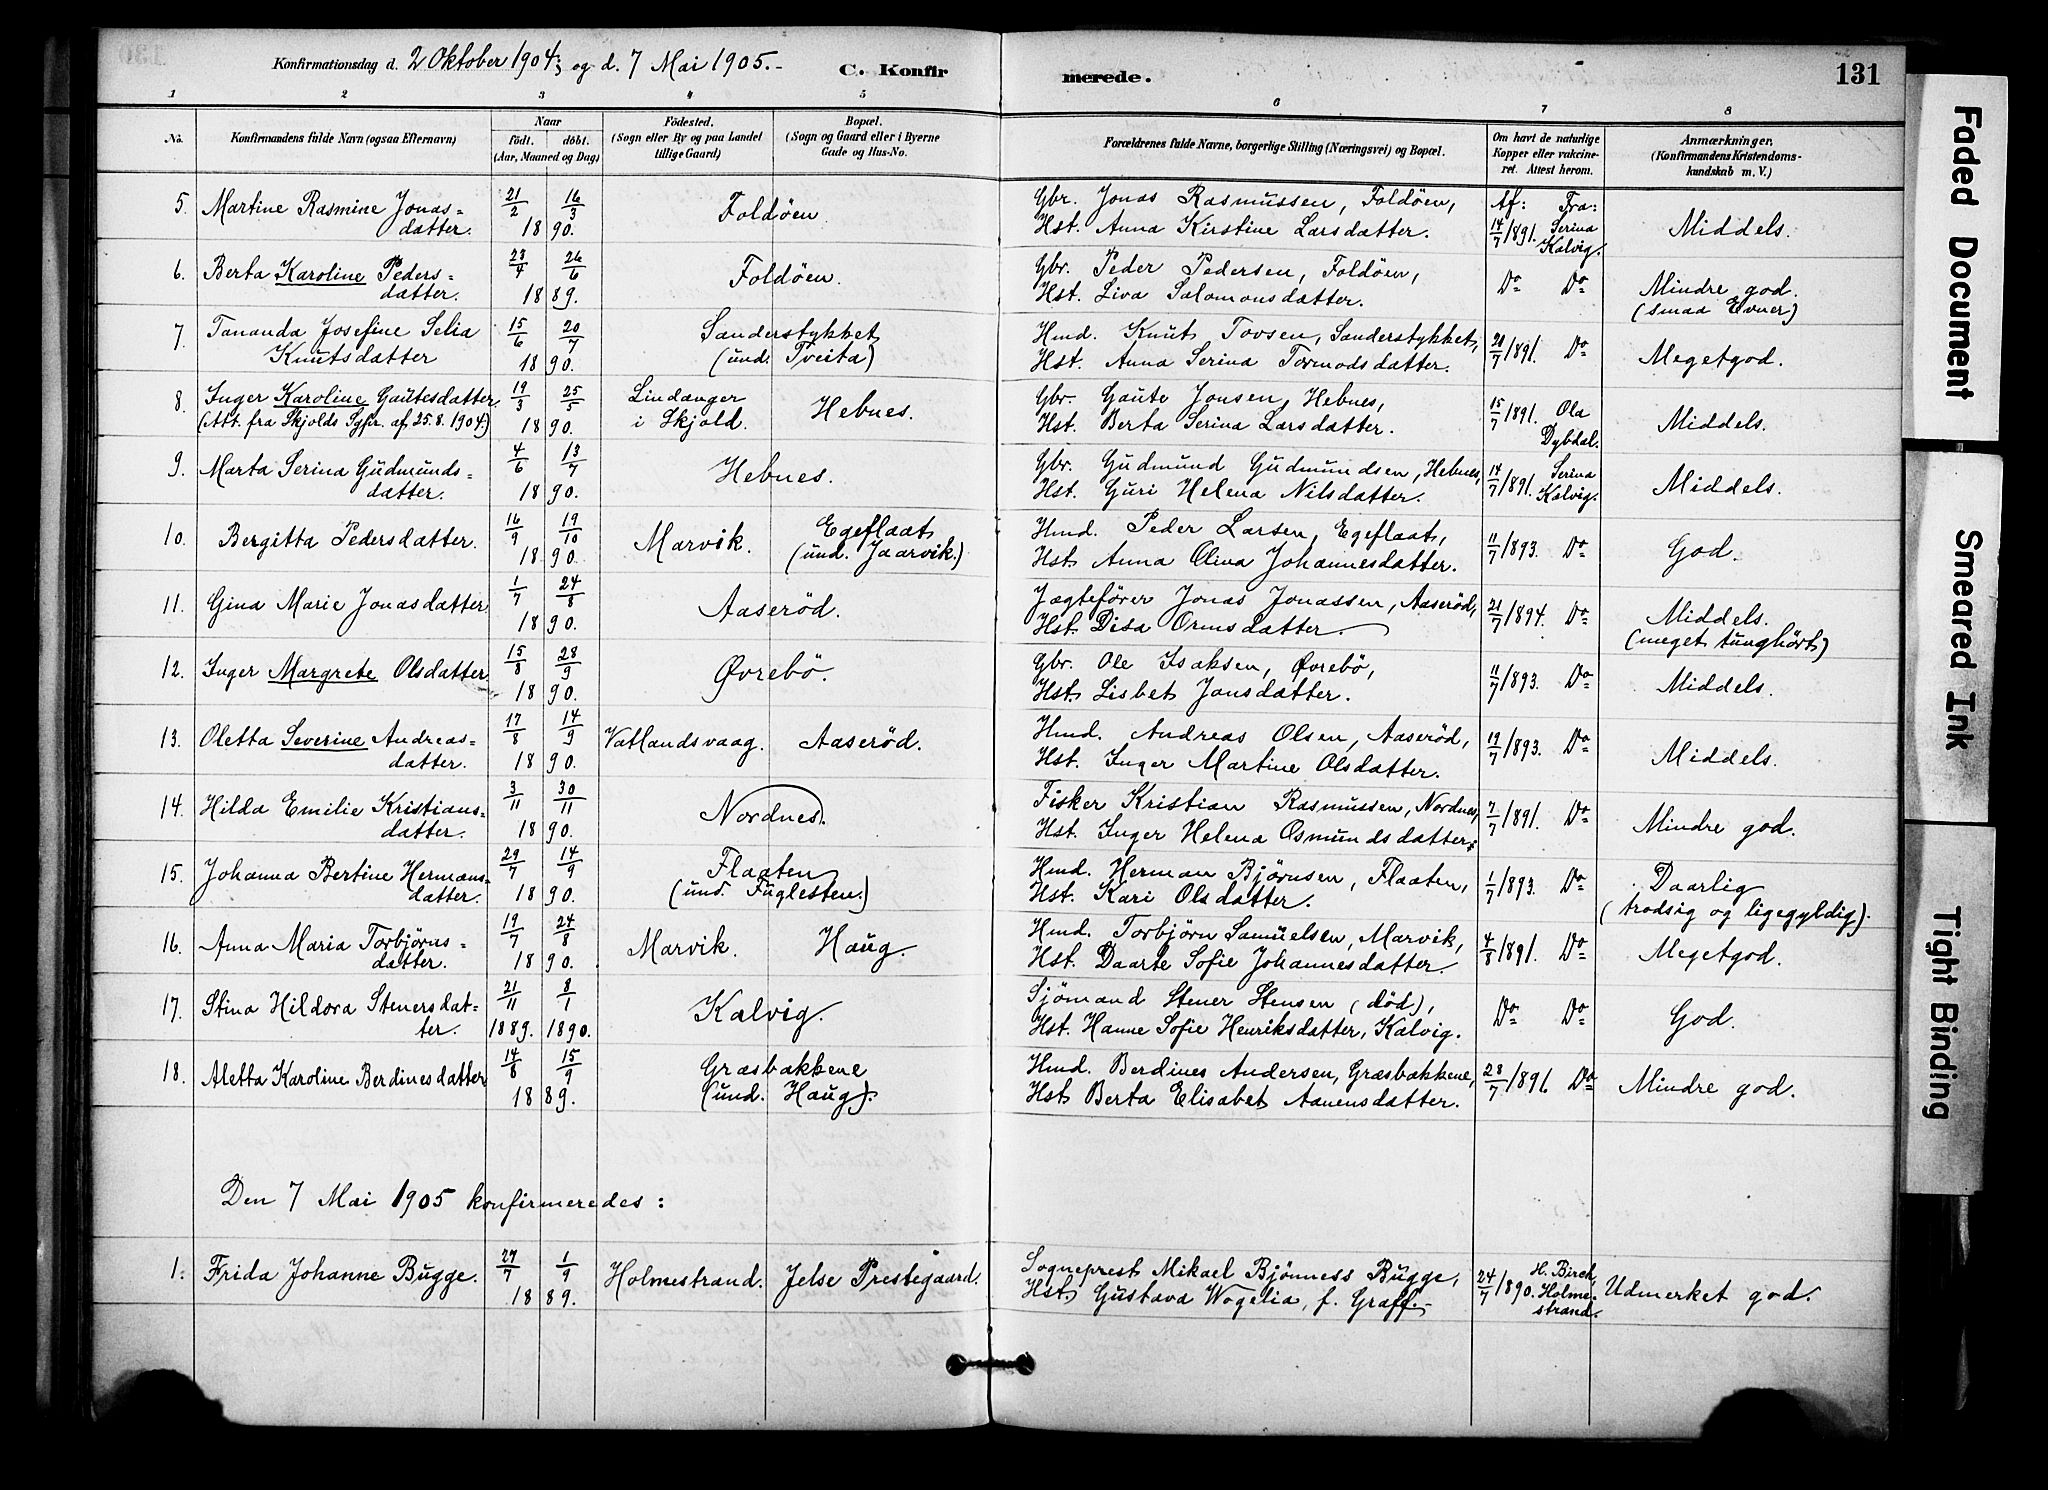 Konfirmationsdag d. 2 Oktober 1904, og d. 7 Mai 1905.- C. Konfirmerede. 131
1 2 3 4 5 6 7 8
No. Konfirmandens fulde Navn (ogsaa Efternavn) Naar födt. döbt. (Aar, Maaned og Dag) Födested. (Sogn eller By og paa Landet tillige Gaard) Bopæl. (Sogn og Gaard eller i Byerne Gade og Hus-No. Forældrenes fulde Navne, borgerlige Stilling (Næringsvei) og Bopæl. Om havt de naturlige Kopper eller vakcineret. Attest herom. Anmærkninger. (Konfirmandens Kristendomskundskab m. V.)
5. Martine Rasmine Jonas= 21/2 16/3 Foldöen. Gbr. Jonas Rasmussen, Foldöen, Af: Fra:
datter. 18 90. Hst. Anna Kirstine Larsdatter. 14/7 1891. Serina Kalvig. Middels.
6. Berta Karoline Peders= 23/4 26/6 Foldöen. Gbr. Peder Pedersen, Foldöen,
datter. 18 89. Hst. Liva Salomonsdatter. Do Do Mindre god. (smaa Evner)
7. Tananda Josefine Selia 15/6 20/7 Sanderstykket Hmd. Knut Tovsen, Sanderstykket,
Knutsdatter 18 90. (und. Tveita) Hst. Anna Serina Tormodsdatter. 20/7 1891. Do Megetgod.
8. Inger Karoline Gautesdatter 19/3 25/5 Lindanger Hebnes. Gbr. Gaute Jonsen, Hebnes,
(Att. fra Skjolds Sgpr. af 25.8.1904.) 18 90. i Skjold. Hst. Berta Serina Larsdatter. 15/7 1891. Ola Dybdal. Middels.
9. Marta Serina Gudmunds= 4/6 13/7 Hebnes. Gbr. Gudmund Gudmundsen, Hebnes,
datter. 18 90. Hst. Guri Helena Nilsdatter. 14/7 1891. Serina Kalvig. Middels.
10. Bergitta Pedersdatter. 16/9 19/10 Marvik. Egeflaat Hmd. Peder Larsen, Egeflaat,
18 90. (und. Jaarvik.) Hst. Anna Olina Johannesdatter. 11/7 1893. Do God.
11. Gina Marie Jonasdatter 1/7 24/8 Aaseröd. Jægtefører Jonas Jonassen, Aaseröd,
18 90. Hst. Disa Ormsdatter. 21/7 1894. Do Middels. (meget tunghört)
12. Inger Margrete Olsdatter 15/8 28/9 Øvrebö. Gbr. Ole Isaksen, Øvrebö,
18 90. Hst. Lisbet Jonsdatter. 11/7 1893. Do Middels.
13. Oletta Severine Andreas= 17/8 14/9 Vatlandsvaag. Aaseröd. Hmd. Andreas Olsen, Aaseröd,
datter. 18 90. Hst. Inger Martine Olsdatter. 19/7 1893. Do Middels.
14. Hilda Emilie Kristians= 3/11 30/11 Nordnes. Fisker Kristian Rasmussen, Nordnes,
datter. 18 90. Hst. Inger Helena Osmundsdatter. 7/7 1891. Do Mindre god.
15. Johanna Bertine Hermans= 29/7 14/9 Flaaten Hmd. Herman Bjørnsen, Flaaten,
datter. 18 90. (und. Fuglesten.) Hst. Kari Olsdatter. 1/7 1893. Do Daarlig (trodsig og ligegyldig).
16. Anna Maria Torbjörns= 19/7 24/8 Marvik. Haug. Hmd. Torbjörn Samuelsen, Marvik,
datter. 18 90. Hst. Daarte Sofie Johannesdatter. 4/8 1891. Do Megetgod.
17. Stina Hildora Stenersdat= 21/11 8/1 Kalvig. Sjömand Stener Stensen (död),
ter. 1889. 1890. Hst. Hanne Sofie Henriksdatter, Kalvig. Do Do God.
18. Aletta Karoline Berdinesdatter 14/8 15/9 Græsbakkene Hmd. Berdines Andersen, Græsbakkene,
18 89. (und. Haug). Hst. Berta Elisabet Aanensdatter. 28/7 1891. Do Mindre god.
Den 7 Mai 1905 konfirmeredes:
1. Frida Johanne Bugge. 27/7 1/9 Holmestrand. Jelse Prestegaard. Sogneprest Mikael Bjönness Bugge,
18 89. Hst. Gustava Wogelia, f. Graff.- 24/7 1890. H. Birch, Holmestrand. Udmerket god.
Faded Document
Smeared Ink
Tight Binding